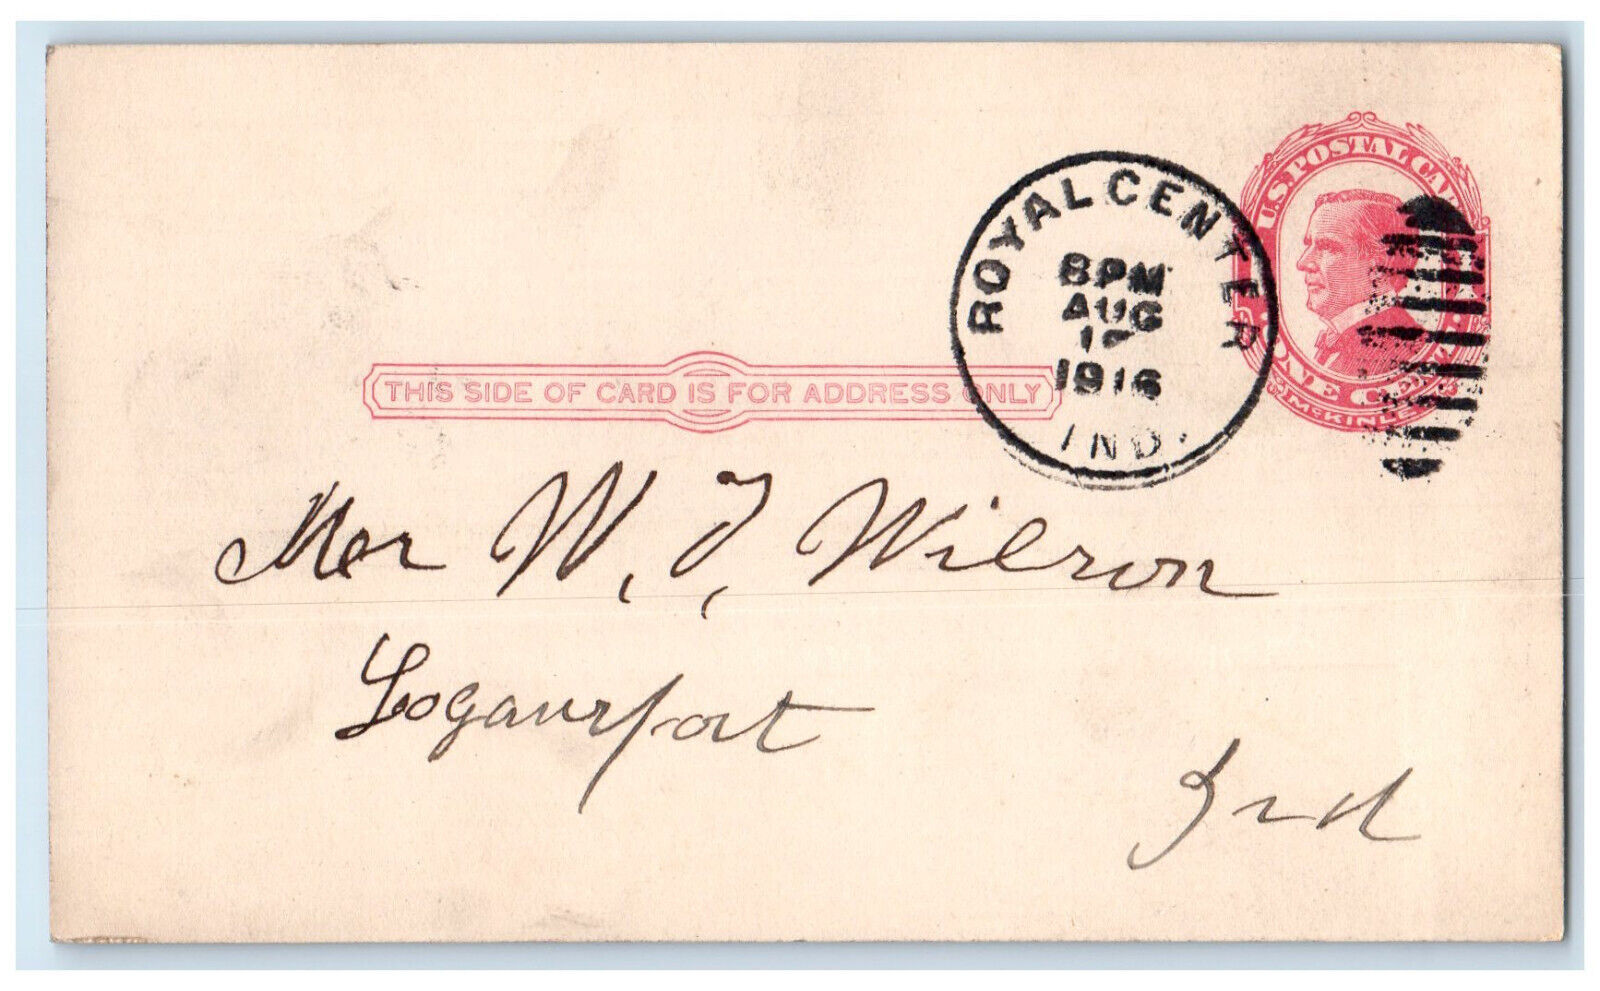 U.S. POSTAL CARD
ROYAL CENTER
8 PM
AUG
1916
IND.
ONE CENT
McKINLEY
THIS SIDE OF CARD IS FOR ADDRESS ONLY
W. T. Wilson
Logansport
Ind